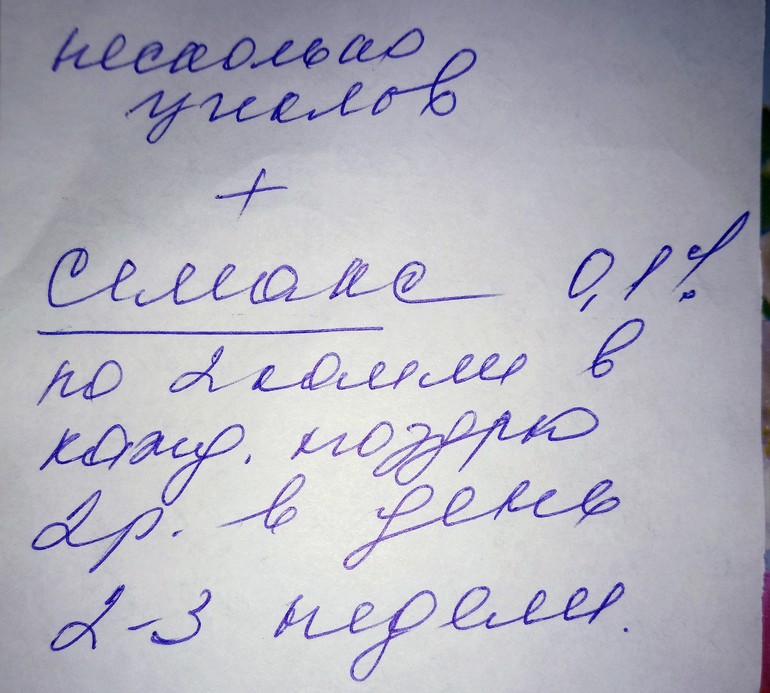 несколько
уколов
+
Семакс 0,1%
по 2 капли в
кажд. ноздрю
2р. в день
2-3 недели.